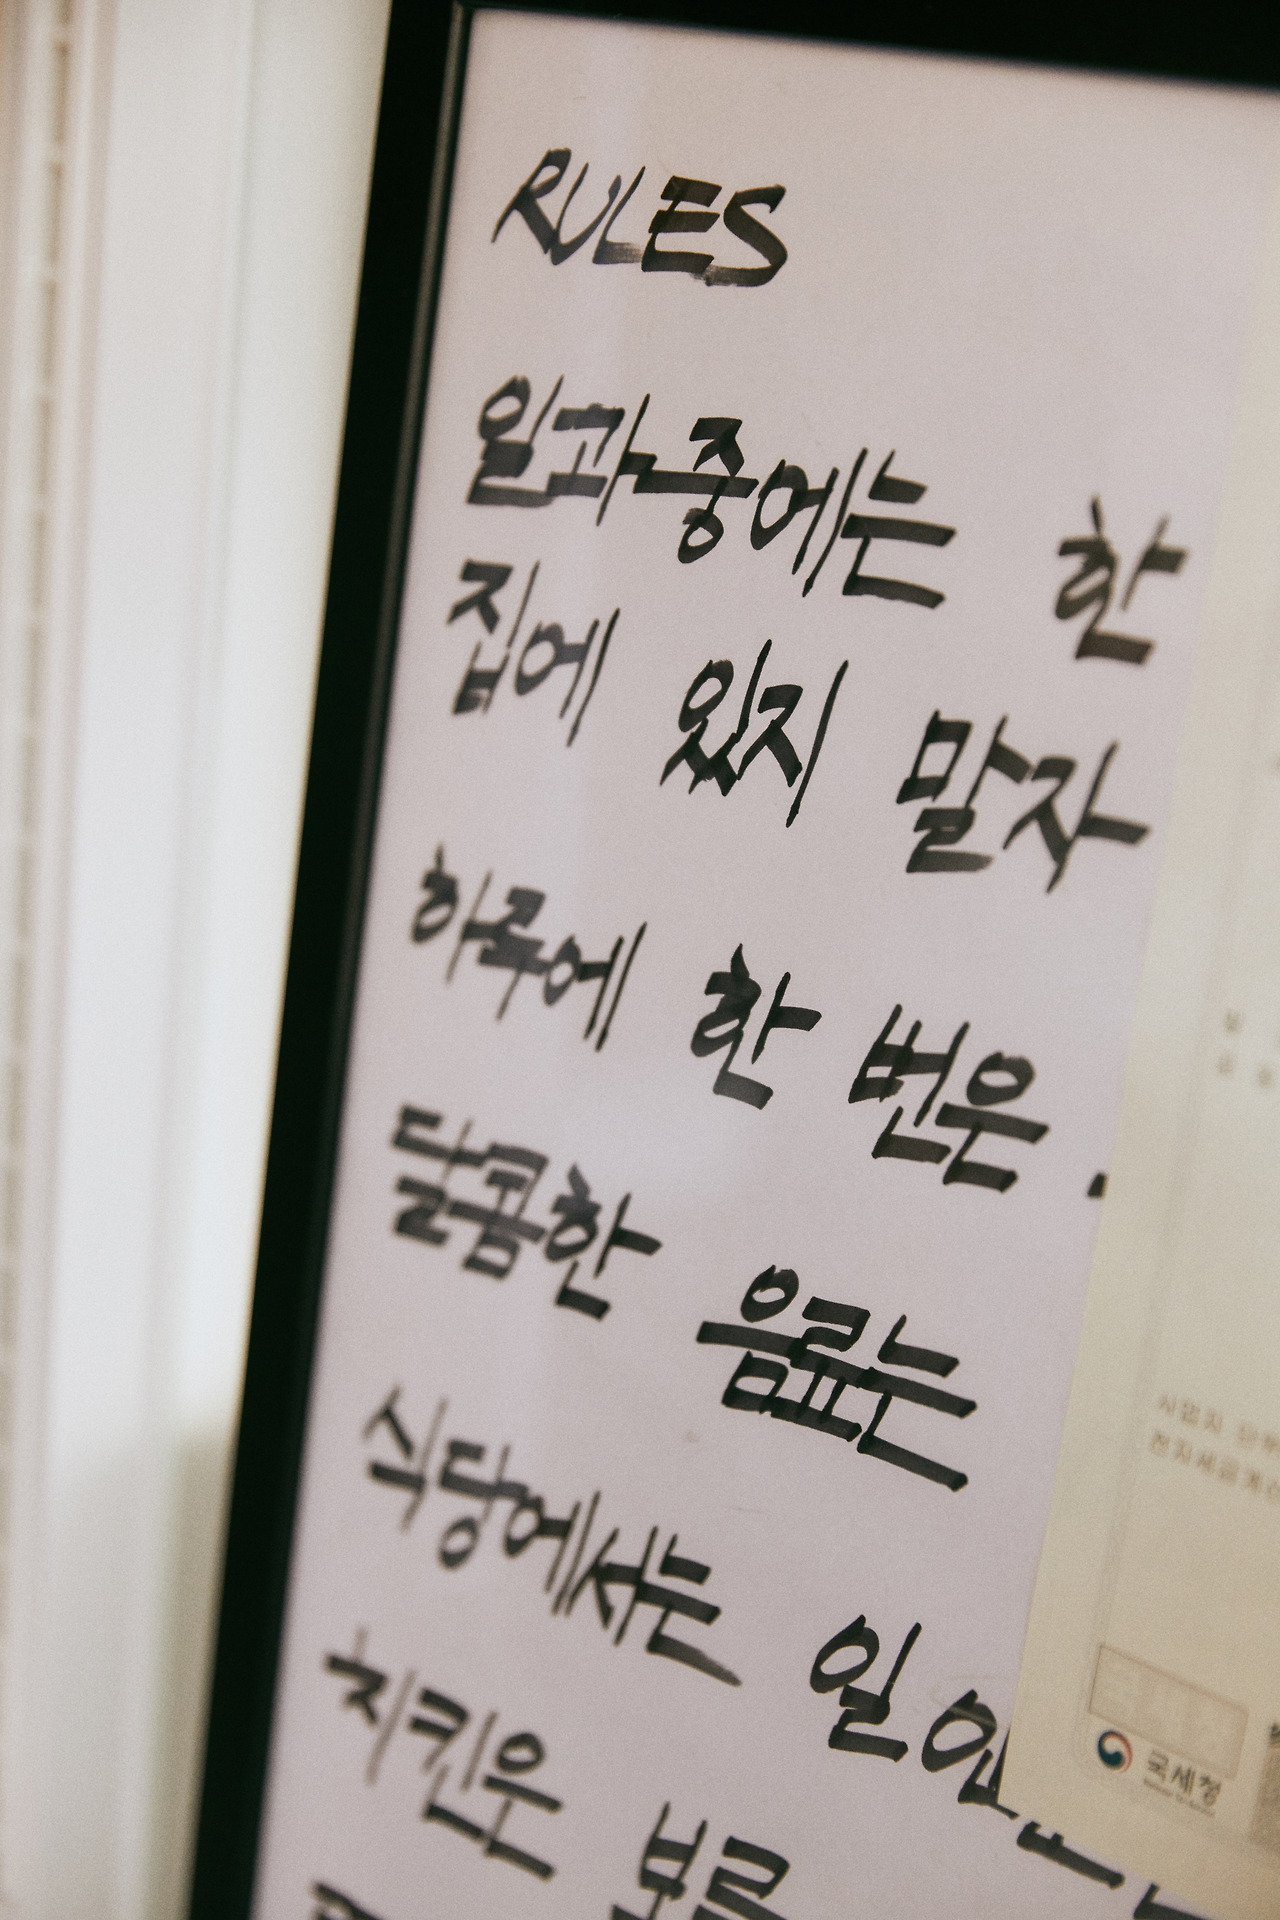 RULES
일과중에는 한
집에 있지 말자
하루에 한 번은
달콤한 음료는
식당에서는 일인
치킨은 보류
국세청